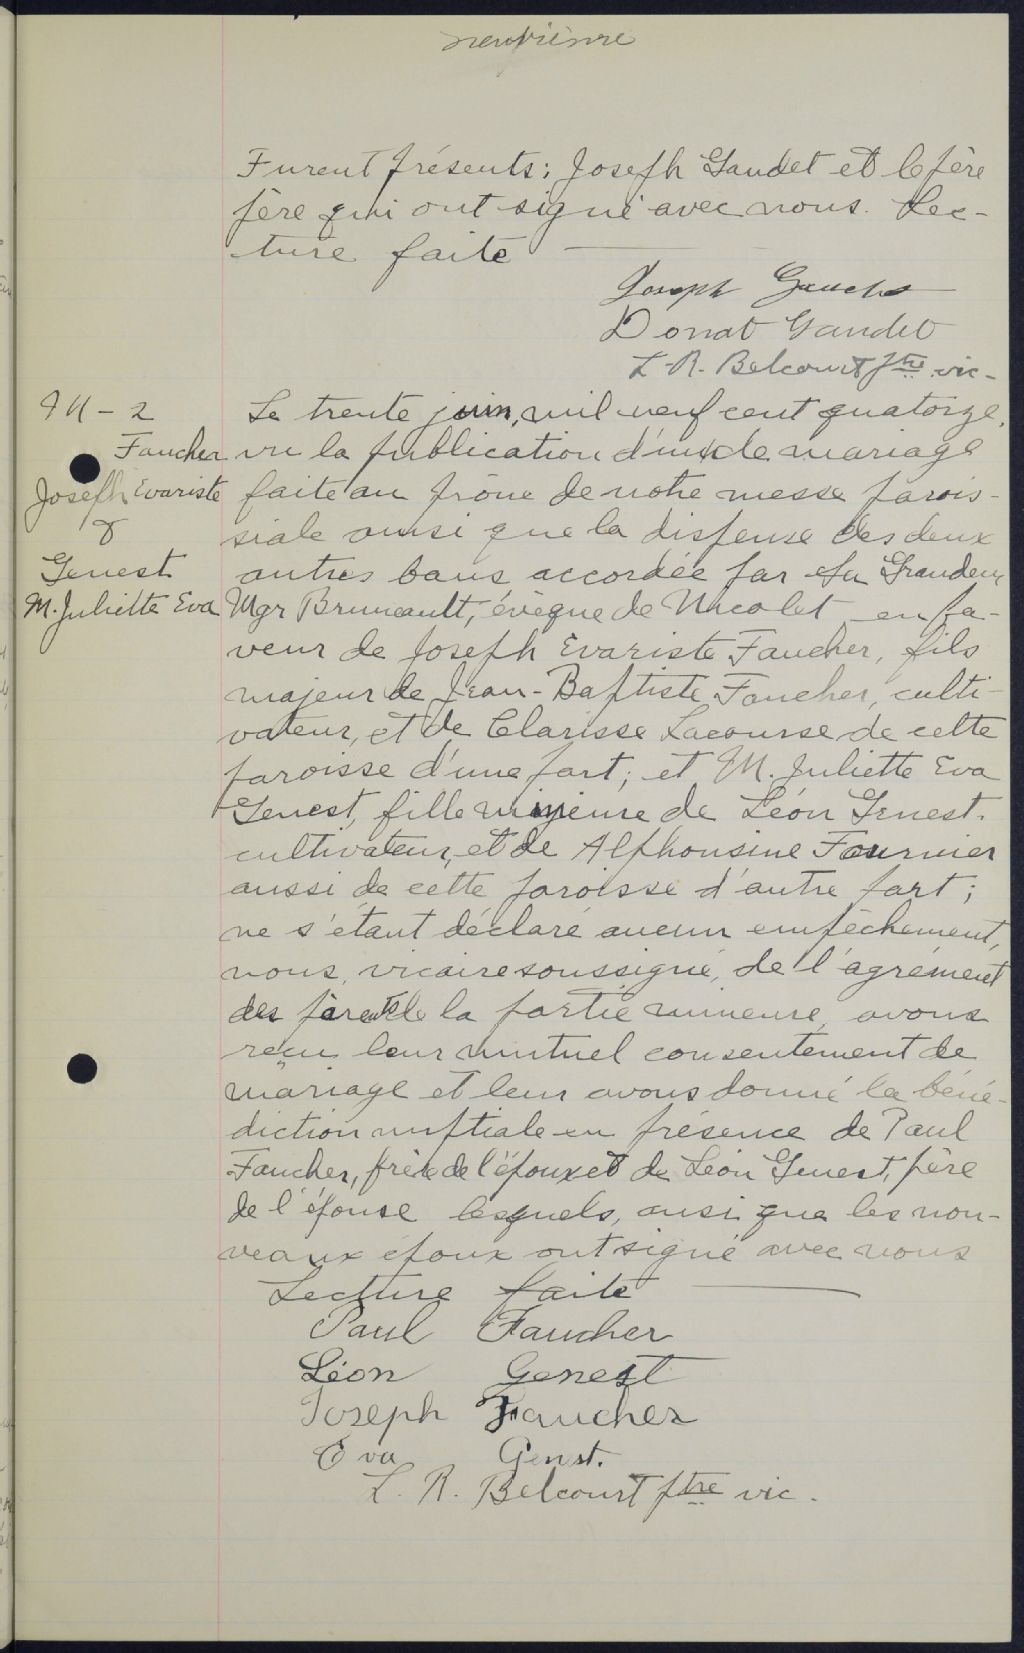 neuvième
Furent présents: Joseph Gaudet et le père
père qui ont signé avec nous. Lec-
ture faite
Joseph
Donat Gaudet
L. R. Belcourt ptre vic-
M - 2
Faucher
Joseph Evariste
&
Genest
M. Juliette Eva
Le trente juin, mil neuf cent quatorze,
vu la publication d'un de mariage
faite au prône de notre messe parois-
siale ainsi que la dispense des deux
autres bans accordée par Sa Grandeur
Mgr Bruneault, évêque de Nicolet en fa-
veur de Joseph Evariste Faucher, fils
majeur de Jean-Baptiste Faucher, culti-
vateur, et de Clarisse Lacourse de cette
paroisse d'une part; et M. Juliette Eva
Genest, fille mineure de Léon Genest.
cultivateur, et de Alphonsine Fournier
aussi de cette paroisse d'autre part;
ne s'étant déclaré aucun empêchement,
nous, vicaire soussigné, de l'agrément
des parents de la partie mineure, avons
reçu leur mutuel consentement de
mariage et leur avons donné la béné-
diction nuptiale en présence de Paul
Faucher, frère de l'époux et de Léon Genest, père
de l'épouse lesquels, ainsi que les nou-
veaux époux ont signé avec nous
Lecture faite
Paul Faucher
Léon Genest
Joseph Faucher
Eva Genst.
L. R. Belcourt ptre vic.